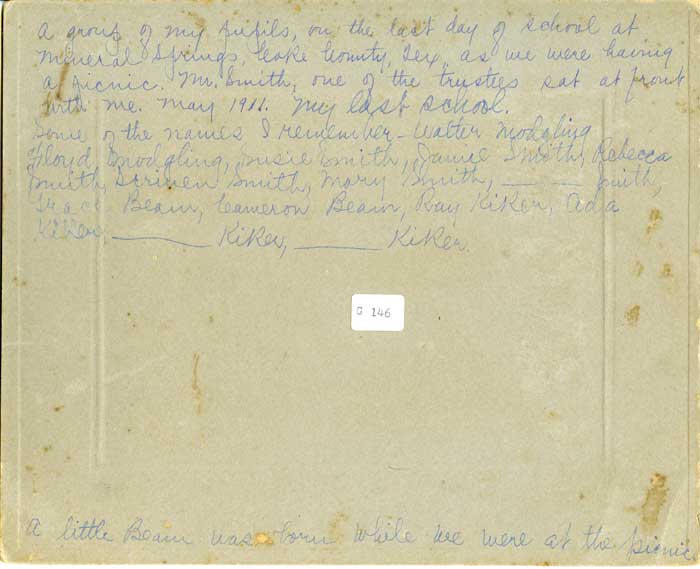 A group of my pupils, on the last day of school at
Mineral Springs, Coke County, Tex, as we were having
a picnic. Mr. Smith, one of the trustees sat at front
with me. May 1911. My last school.
Some of the names I remember - Walter Modgling
Floyd Modgling, Susie Smith, Jamie Smith, Rebecca
Smith, Scriven Smith, Mary Smith, ____ Smith,
Grace Beam, Cameron Beam, Ray Kiker, Ada
Kiker, ____ Kiker, ____ Kiker.
G 146
A little Beam was born while we were at the picnic